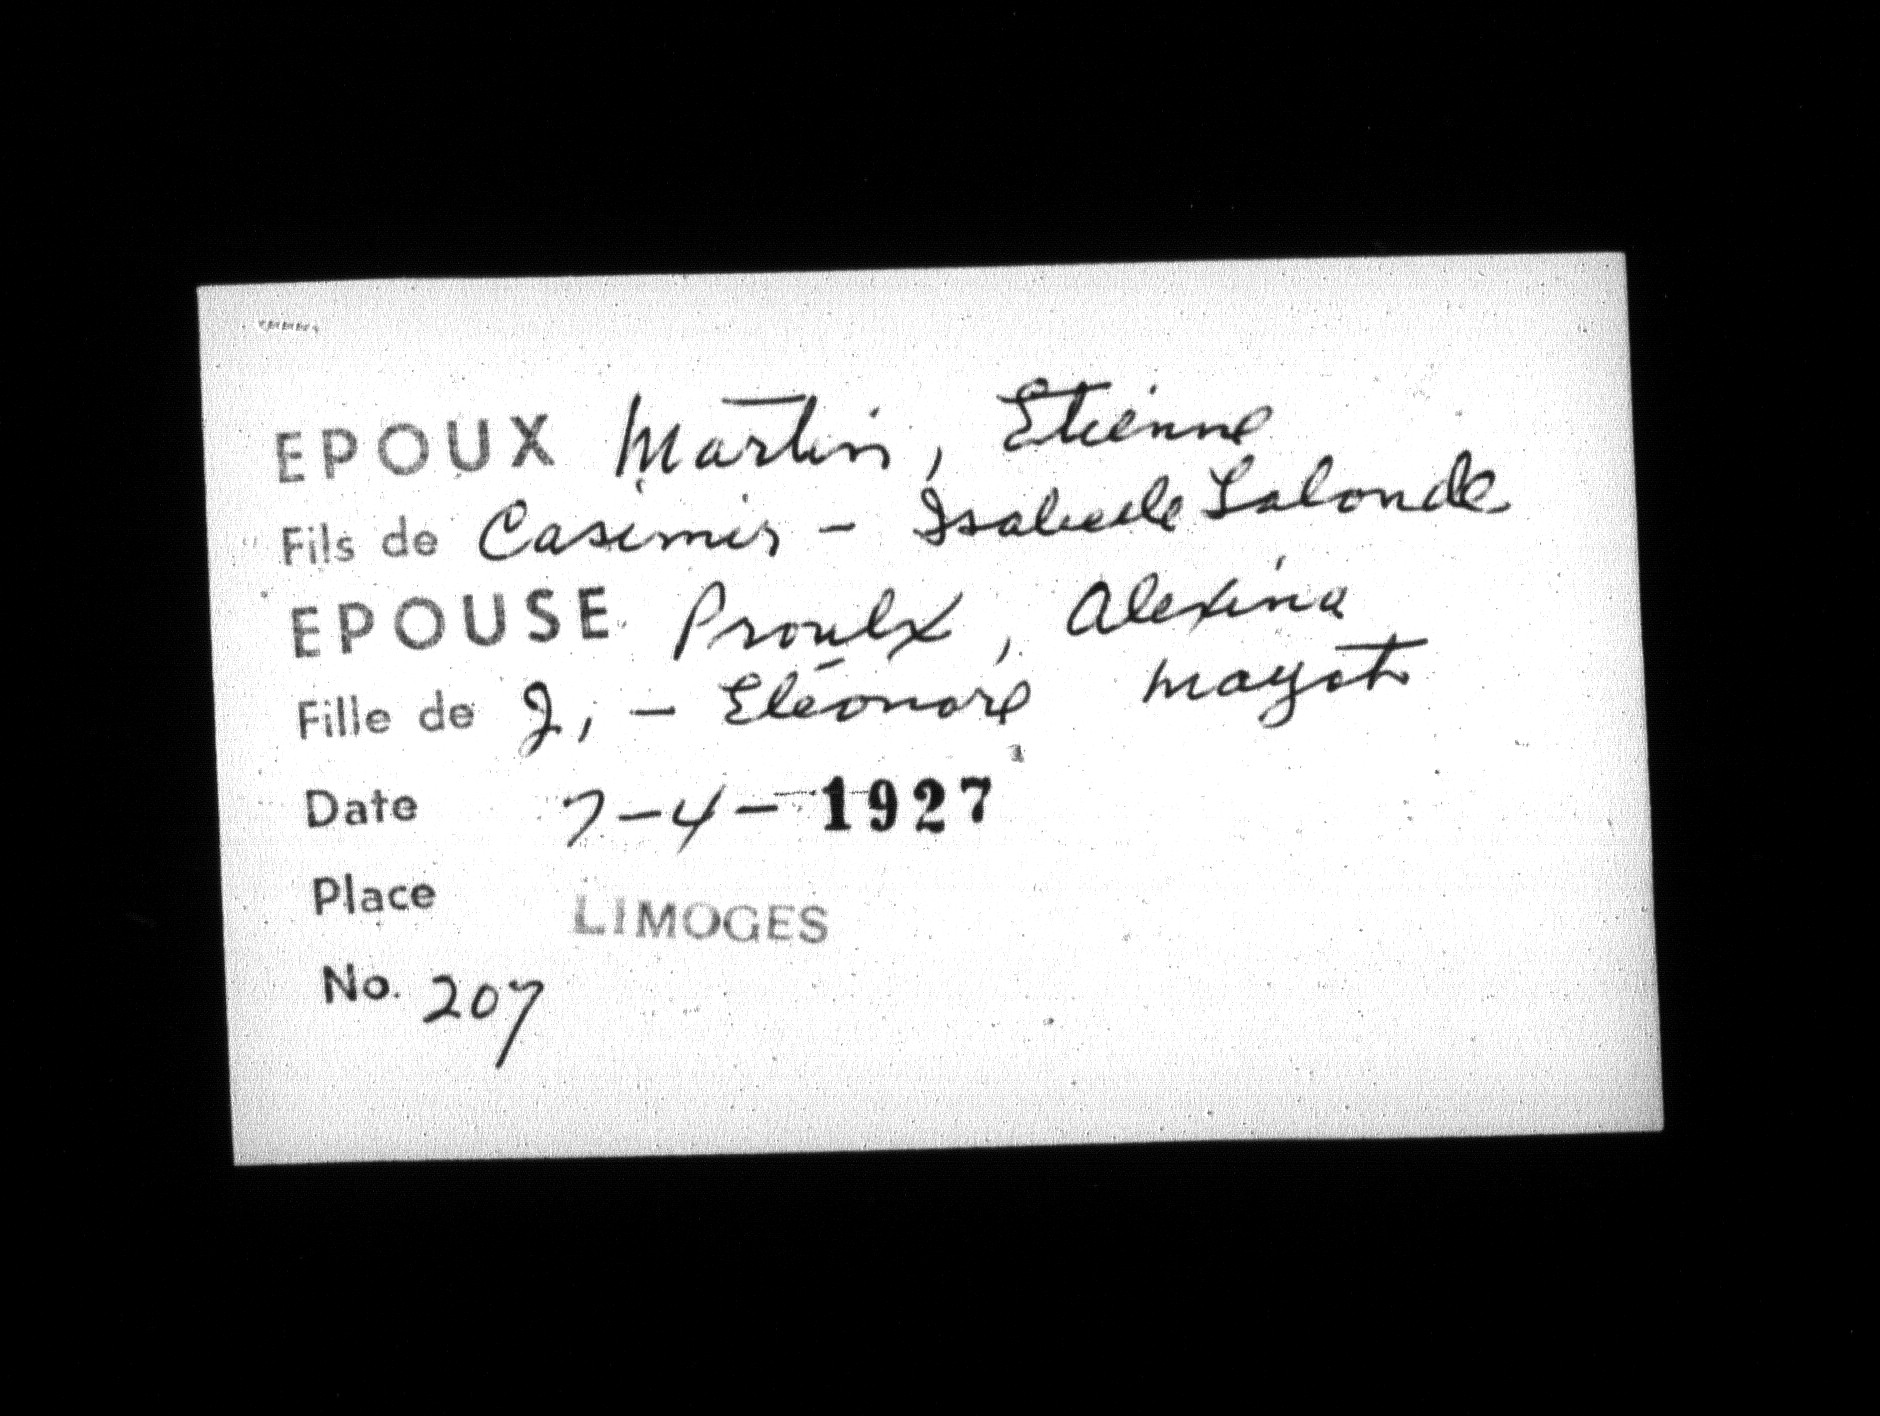 EPOUX Martin, Etienne
Fils de Casimir - Isabelle Lalonde
EPOUSE Proulx, Alexina
Fille de J, - Eléonore Mayot
Date 7-4-1927
Place LIMOGES
No. 207